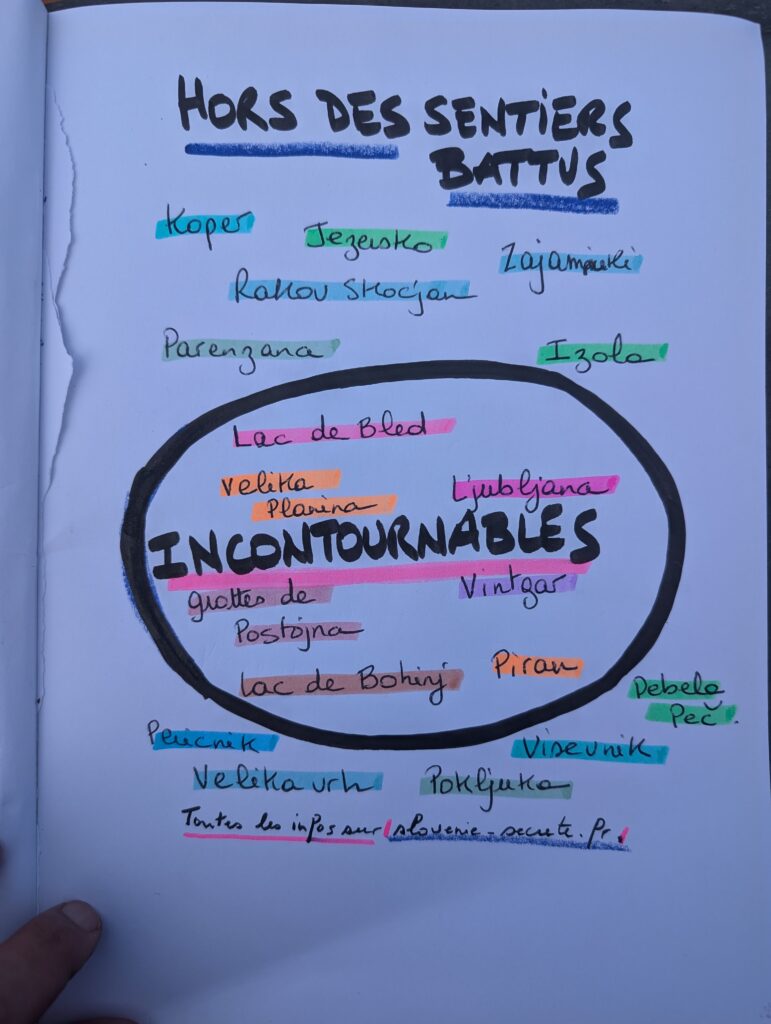 HORS DES SENTIERS
BATTUS
Koper
Jezersko
Zajamniki
Rakov Skocjan
Parenzana
Izola
Lac de Bled
Velika
Planina
Ljubljana
INCONTOURNABLES
grottes de
Postojna
Vintgar
Lac de Bohinj
Piran
Debela
Peč.
Pericnik
Visevnik
Velika vrh
Pokljuka
Toutes les infos sur slovenie-secrete.fr!